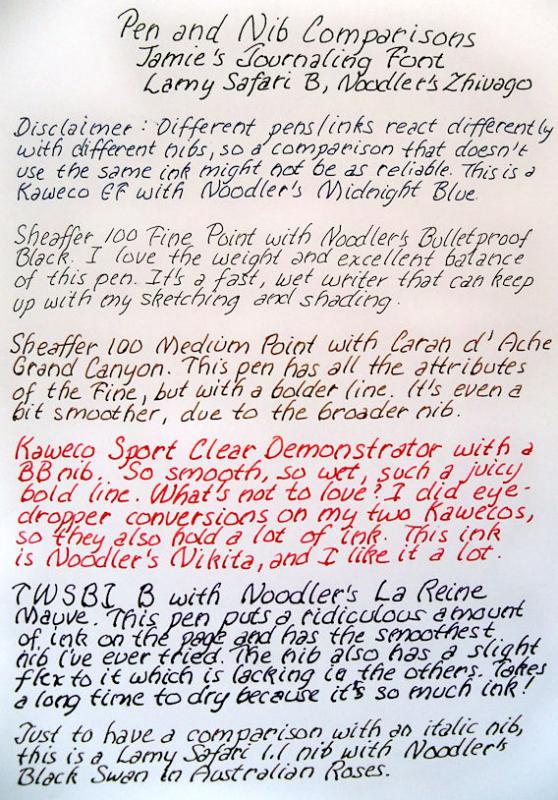 Pen and Nib Comparisons
Jamie's Journaling Font
Lamy Safari B, Noodler's Zhivago
Disclaimer: Different pens/inks react differently
with different nibs, so a comparison that doesn't
use the same ink might not be as reliable. This is a
Kaweco EF with Noodler's Midnight Blue.
Sheaffer 100 Fine Point with Noodler's Bulletproof
Black. I love the weight and excellent balance
of this pen. It's a fast, wet writer that can keep
up with my sketching and shading.
Sheaffer 100 Medium Point with Caran d'Ache
Grand Canyon. This pen has all the attributes
of the Fine, but with a bolder line. It's even a
bit smoother, due to the broader nib.
Kaweco Sport Clear Demonstrator with a
BB nib. So smooth, so wet, such a juicy
bold line. What's not to love? I did eye-
dropper conversions on my two Kawecos,
so they also hold a lot of ink. This ink
is Noodler's Nikita, and I like it a lot.
TWSBI B with Noodler's La Reine
Mauve. This pen puts a ridiculous amount
of ink on the page and has the smoothest
nib i've ever tried. The nib also has a slight
flex to it which is lacking in the others. Takes
a long time to dry because it's so much ink!
Just to have a comparison with an italic nib,
this is a Lamy Safari 1.1 nib with Noodler's
Black Swan in Australian Roses.